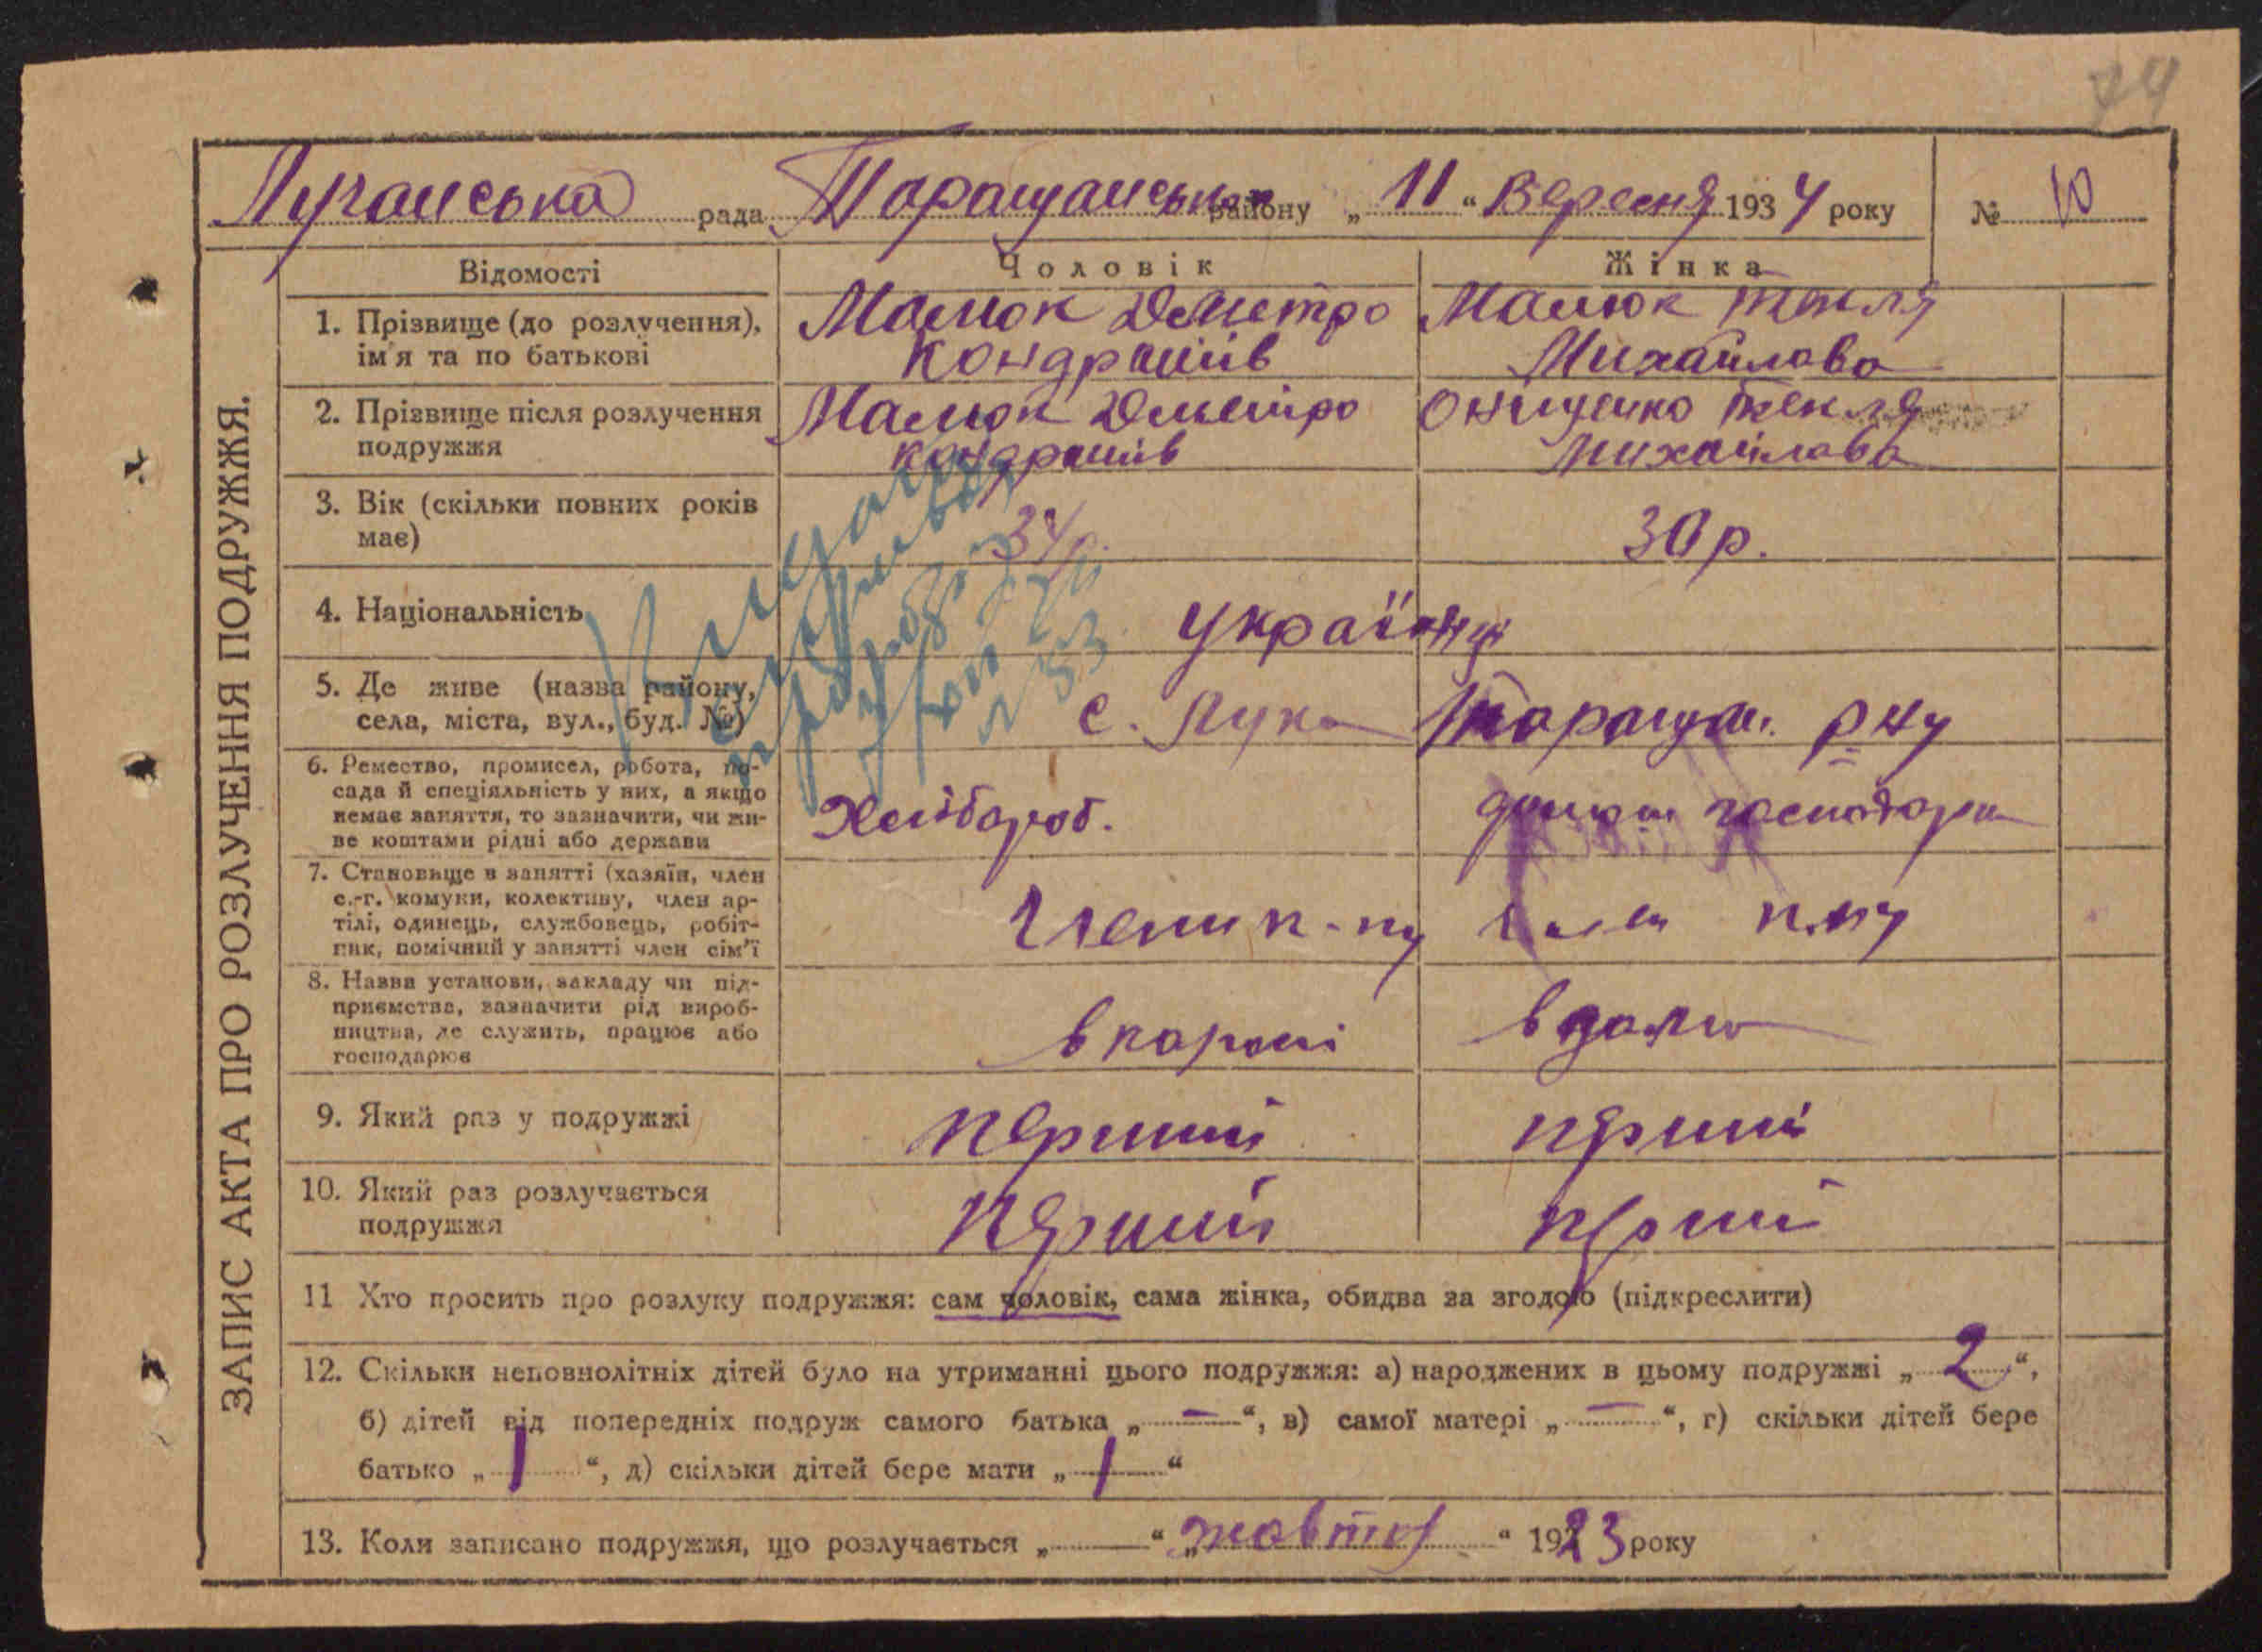 74
ЗАПИС АКТА ПРО РОЗЛУЧЕННЯ ПОДРУЖЖЯ.
Лучанська рада Таращанськ району „ 11 “ Вересня 1934 року № 10
Відомості Чоловік Жінка
1. Прізвище (до розлучення), Малюк Дмитро Малюк Текля
ім'я та по батькові Кондратів Михайлова
2. Прізвище після розлучення Малюк Дмитро Онищенко Текля
подружжя Кондратів Михайлова
3. Вік (скільки повних років
має) 34 р. 30 р.
4. Національність українці
5. Де живе (назва району,
села, міста, вул., буд. №) с. Лука Таращан. р-ну
6. Ремество, промисел, робота, по-
сада й спеціяльність у них, а якщо
немає заняття, то зазначити, чи жи- Хлібороб. домаш господарка
ве коштами рідні або держави
7. Становище в занятті (хазяїн, член
с.-г. комуни, колективу, член ар-
тілі, одинець, службовець, робіт- Член к-пу член к-пу
ник, помічний у занятті член сім'ї
8. Назва установи, закладу чи під-
приємства, зазначити рід вироб-
ництва, де служить, працює або в
господарює
9. Який раз у подружжі перший перший
10. Який раз розлучається
подружжя перший перший
11 Хто просить про розлуку подружжя: сам чоловік, сама жінка, обидва за згодою (підкреслити)
12. Скільки неповнолітніх дітей було на утриманні цього подружжя: а) народжених в цьому подружжі „ 2 “,
б) дітей від попередніх подруж самого батька „ — “, в) самої матері „ — “, г) скільки дітей бере
батько „ 1 “, д) скільки дітей бере мати „ 1 “
13. Коли записано подружжя, що розлучається „ — “ „ жовтня “ 1923 року